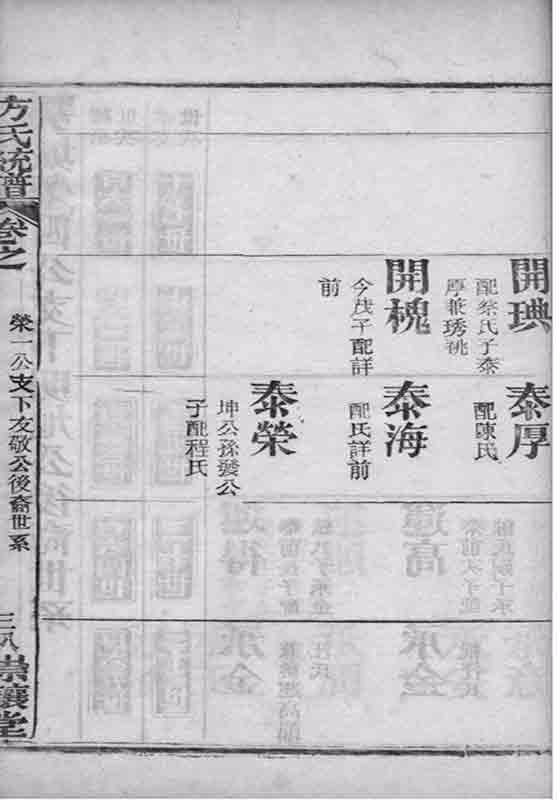 開琠
配蔡氏子泰
厚兼琇祧
開槐
今茂子配詳
前
泰厚
配陳氏
泰海
配氏詳前
泰榮
坤公孫發公
子配程氏
方氏統譜
卷之
榮一公支下友敬公後裔世系
三八
崇讓堂